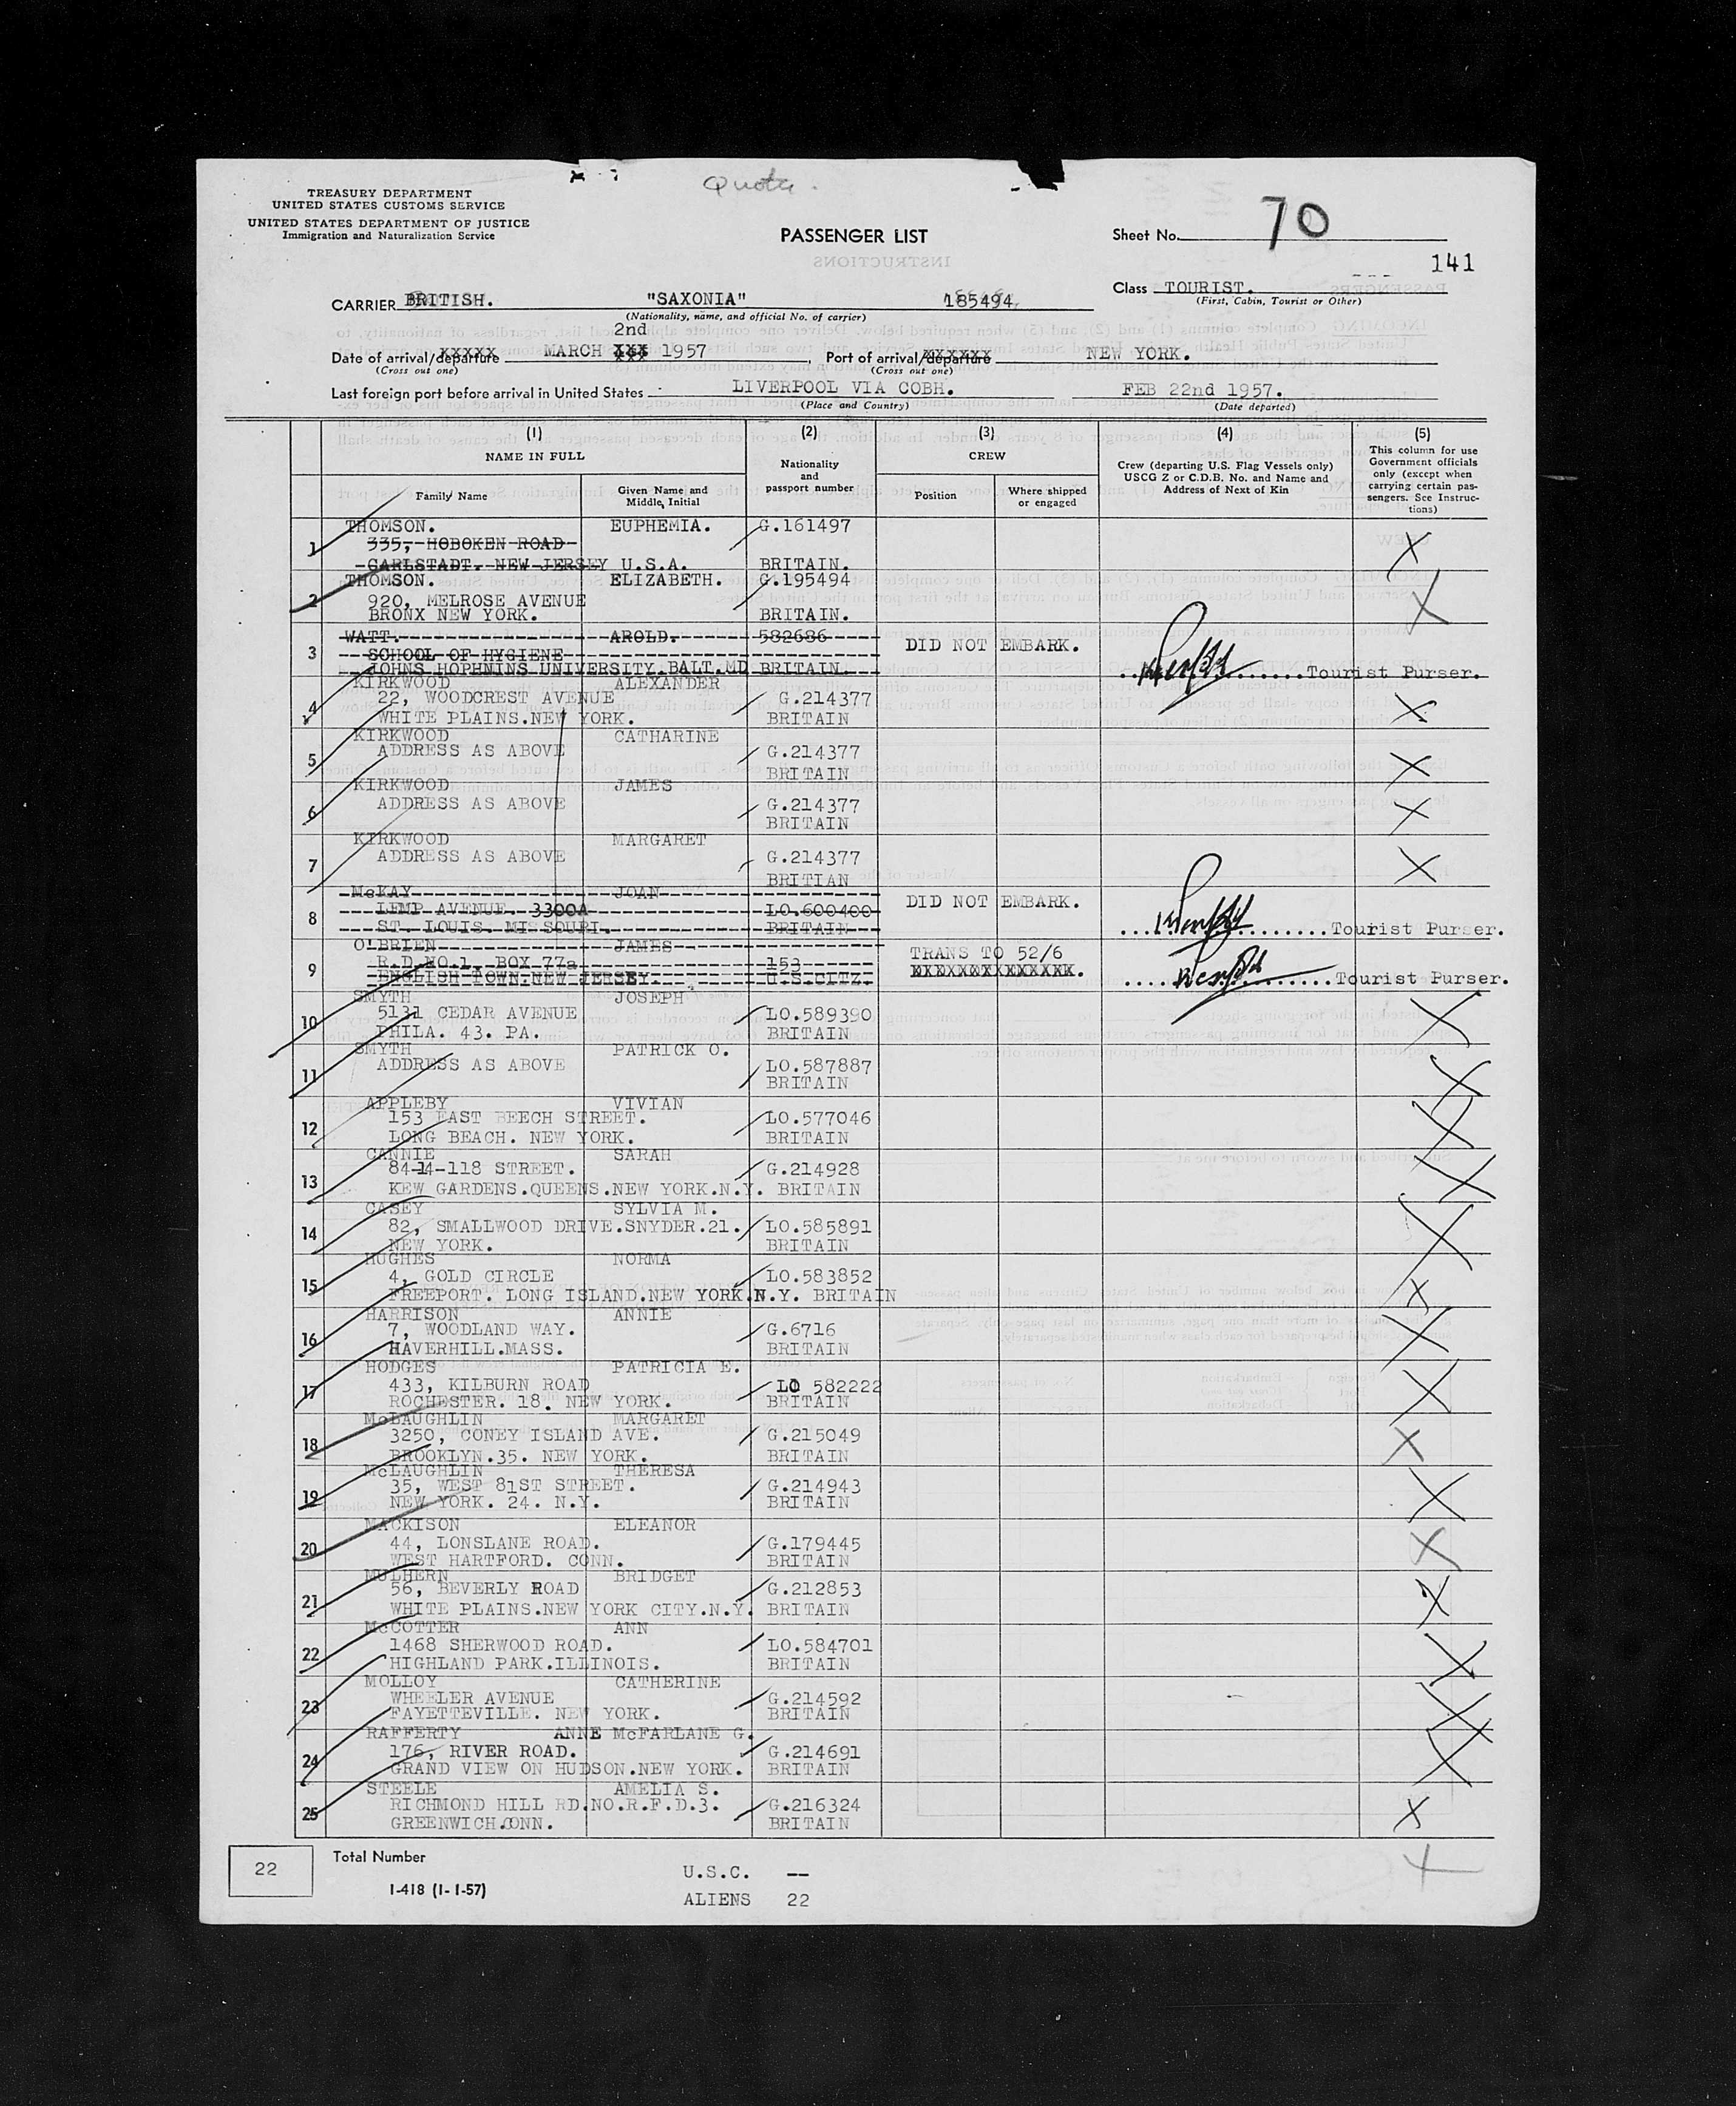 Quota.
TREASURY DEPARTMENT
UNITED STATES CUSTOMS SERVICE
UNITED STATES DEPARTMENT OF JUSTICE
Immigration and Naturalization Service
PASSENGER LIST
Sheet No. 70
141
Class TOURIST.
(First, Cabin, Tourist or Other)
CARRIER BRITISH. "SAXONIA" 185494
(Nationality, name, and official No. of carrier)
2nd
Date of arrival/departure MARCH XXX 1957, Port of arrival/departure NEW YORK.
(Cross out one) (Cross out one)
Last foreign port before arrival in United States LIVERPOOL VIA COBH. FEB 22nd 1957.
(Place and Country) (Date departed)
(1) (2) (3) (4) (5)
NAME IN FULL
Nationality and passport number
CREW
Crew (departing U.S. Flag Vessels only) USCG Z or C.D.B. No. and Name and Address of Next of Kin
This column for use Government officials only (except when carrying certain passengers. See Instructions)
Family Name Given Name and Middle, Initial Position Where shipped or engaged
1 THOMSON. EUPHEMIA. G.161497
335, HOBOKEN ROAD
CARLSTADT. NEW JERSEY U.S.A. BRITAIN. X
2 THOMSON. ELIZABETH. G.195494
920, MELROSE AVENUE
BRONX NEW YORK. BRITAIN. X
3 WATT. AROLD. 582686
SCHOOL OF HYGIENE DID NOT EMBARK.
JOHNS HOPHNINS UNIVERSITY.BALT.MD BRITAIN. Tourist Purser.
4 KIRKWOOD ALEXANDER
22, WOODCREST AVENUE G.214377
WHITE PLAINS.NEW YORK. BRITAIN X
5 KIRKWOOD CATHARINE
ADDRESS AS ABOVE G.214377
BRITAIN X
6 KIRKWOOD JAMES
ADDRESS AS ABOVE G.214377
BRITAIN X
7 KIRKWOOD MARGARET
ADDRESS AS ABOVE G.214377
BRITIAN X
8 McKAY JOAN
LEMP AVENUE. 3300A LO.600400 DID NOT EMBARK.
ST. LOUIS. MISSOURI. BRITAIN Tourist Purser.
9 O'BRIEN JAMES
R.D.NO.1. BOX 77a 153 TRANS TO 52/6
ENGLISH TOWN.NEW JERSEY. U.S.CITZ. Tourist Purser.
10 SMYTH JOSEPH
5131 CEDAR AVENUE LO.589390
PHILA. 43. PA. BRITAIN X
11 SMYTH PATRICK O.
ADDRESS AS ABOVE LO.587887
BRITAIN X
12 APPLEBY VIVIAN
153 EAST BEECH STREET. LO.577046
LONG BEACH. NEW YORK. BRITAIN X
13 CANNIE SARAH
84-14-118 STREET. G.214928
KEW GARDENS.QUEENS.NEW YORK.N.Y. BRITAIN X
14 CASEY SYLVIA M.
82, SMALLWOOD DRIVE.SNYDER.21. LO.585891
NEW YORK. BRITAIN X
15 HUGHES NORMA
4, GOLD CIRCLE LO.583852
FREEPORT. LONG ISLAND.NEW YORK.N.Y. BRITAIN X
16 HARRISON ANNIE
7, WOODLAND WAY. G.6716
HAVERHILL.MASS. BRITAIN X
17 HODGES PATRICIA E.
433, KILBURN ROAD LO 582222
ROCHESTER. 18. NEW YORK. BRITAIN X
18 McLAUGHLIN MARGARET
3250, CONEY ISLAND AVE. G.215049
BROOKLYN.35. NEW YORK. BRITAIN X
19 McLAUGHLIN THERESA
35, WEST 81ST STREET. G.214943
NEW YORK. 24. N.Y. BRITAIN X
20 MACKISON ELEANOR
44, LONSLANE ROAD. G.179445
WEST HARTFORD. CONN. BRITAIN X
21 MULHERN BRIDGET
56, BEVERLY ROAD G.212853
WHITE PLAINS.NEW YORK CITY.N.Y. BRITAIN X
22 McCOTTER ANN
1468 SHERWOOD ROAD. LO.584701
HIGHLAND PARK.ILLINOIS. BRITAIN X
23 MOLLOY CATHERINE
WHEELER AVENUE G.214592
FAYETTEVILLE. NEW YORK. BRITAIN X
24 RAFFERTY ANNE McFARLANE G.
176, RIVER ROAD. G.214691
GRAND VIEW ON HUDSON.NEW YORK. BRITAIN X
25 STEELE AMELIA S.
RICHMOND HILL RD.NO.R.F.D.3. G.216324
GREENWICH.CONN. BRITAIN X
22 Total Number
U.S.C. --
I-418 (1-1-57)
ALIENS 22